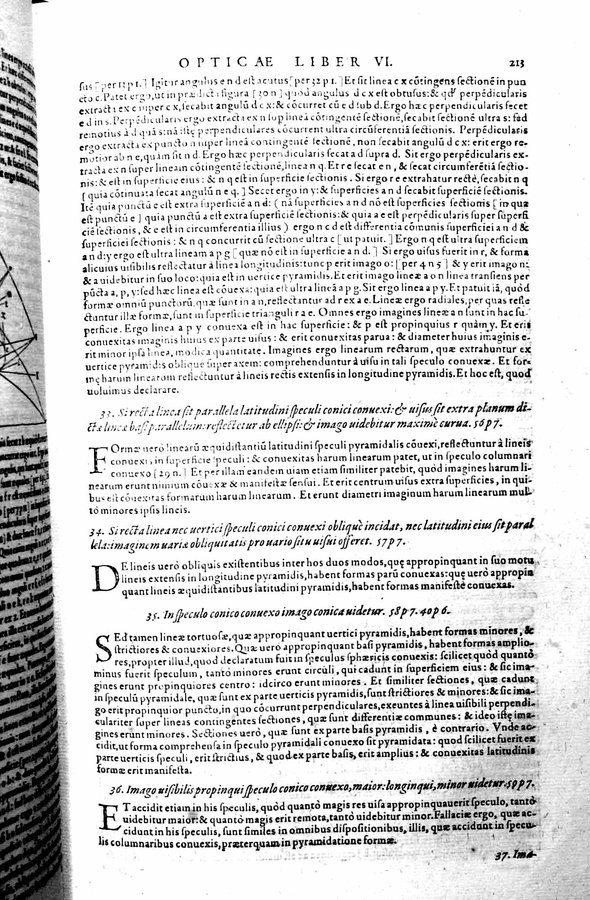 OPTICAE LIBER VI. 213
sus [per 12 p 1.] Igitur angulus e n d est acutus [per 32 p 1.] Et sit linea c x cõtingens sectionẽ in pun
cto c. Patet ergo, ut in prædicta figura [20 n] quod angulus d c x est obtusus: & qd' perpẽdicularis
extracta ex c super c x, secabit angulũ d c x: & cõcurret cũ e d sub d. Ergo hæc perpendicularis secet
e d in s. Perpẽdicularis ergo extracta ex n sup lineã cõtingentẽ sectionẽ, secabit sectionẽ ultra s: sed
remotius à d quã s: nã istę perpendiculares cõcurrent ultra circũferentiã sectionis. Perpẽdicularis
ergo extracta ex puncto n super lineã contingentẽ sectionẽ, non secabit angulũ d c x: erit ergo re-
motior ab n e, quàm sit n d. Ergo hæc perpendicularis secat a d supra d. Sit ergo perpẽdicularis ex-
tracta ex n super lineam cõtingentẽ sectionẽ, linea n q. Et r e secat e n, & secat circumferẽtiã sectio-
nis: & est in superficie eius: & n q est in superficie sectionis. Si ergo r e extrahatur rectè, secabit n q
[quia cõtinuata secat angulũ n e q.] Secet ergo in y: & superficies a n d secabit superficiẽ sectionis.
Itẽ quia punctũ e est extra superficiẽ a n d: (nã superficies a n d nõ est superficies sectionis [in qua
est punctũ e] quia punctũ a est extra superficiẽ sectionis: & quia a e est perpẽdicularis super superfi
ciẽ sectionis, & e est in circumferentia illius) ergo n c d est differentia cõmunis superficiei a n d &
superficiei sectionis: & n q concurrit cũ sectione ultra c [ut patuit.] Ergo n q est ultra superficiem
a n d: y ergo est ultra lineam a p g [quæ nõ est in superficie a n d.] Si ergo uisus fuerit in r, & forma
alicuius uisibilis reflectatur à linea longitudinis: tunc p erit imago o: [per 4 n 5] & y erit imago n:
& a uidebitur in suo loco: quia est in uertice pyramidis. Et erit imago lineæ a o n linea transiens per
pũcta a, p, y: sed hæc linea est cõuexa: quia y est ultra lineã a p g. Sit ergo linea a p y. Et patuit iã, quòd
formæ omniũ punctorũ, quæ sunt in a n, reflectantur ad r ex a e. Lineæ ergo radiales, per quas refle
ctuntur illæ formæ, sunt in superficie trianguli r a e. Omnes ergo imagines lineæ a n sunt in hac su-
perficie. Ergo linea a p y conuexa est in hac superficie: & p est propinquius r quàm y. Et erit
conuexitas imaginis huius ex parte uisus: & erit conuexitas parua: & diameter huius imaginis e-
rit minor ipsa linea, modica quantitate. Imagines ergo linearum rectarum, quæ extrahuntur ex
uertice pyramidis obliquè super axem: comprehenduntur à uisu in tali speculo conuexæ. Et for-
mę harum linearum reflectuntur à lineis rectis extensis in longitudine pyramidis. Et hoc est, quod
uoluimus declarare.
33. Si recta linea sit parallela latitudini speculi conici conuexi: & uisus sit extra planum di-
ctæ lineæ basi parallelum: reflectetur ab ellipsi: & imago uidebitur maximè curua. 56 p 7.
FOrmæ uerò linearũ æquidistantiũ latitudini speculi pyramidalis cõuexi, reflectuntur à lineis
conuexis in superficie speculi: & conuexitas harum linearum patet, ut in speculo columnari
conuexo [29 n.] Et per illam eandem uiam etiam similiter patebit, quòd imagines harum li-
nearum erunt nimium cõuexæ & manifestæ sensui. Et erit centrum uisus extra superficies, in qui-
bus est cõuexitas formarum harum linearum. Et erunt diametri imaginum harum linearum mul-
tò minores ipsis lineis.
34. Si recta linea nec uertici speculi conici conuexi obliquè incidat, nec latitudini eius sit paral
lela: imaginem uariæ obliquitatis pro uario situ uisui offeret. 57 p 7.
DE lineis uerò obliquis existentibus inter hos duos modos, quę appropinquant in suo motu
lineis extensis in longitudine pyramidis, habent formas parũ conuexas: quę uerò appropin
quant lineis æquidistantibus latitudini pyramidis, habent formas manifestè conuexas.
35. In speculo conico conuexo imago conica uidetur. 58 p 7. 40 p 6.
SEd tamen lineæ tortuosæ, quæ appropinquant uertici pyramidis, habent formas minores, &
strictiores & conuexiores. Quæ uerò appropinquant basi pyramidis, habent formas amplio-
res, propter illud, quod declaratum fuit in speculis sphæricis conuexis: scilicet quòd quantò
minus fuerit speculum, tantò minores erunt circuli, qui cadunt in superficiem eius: & sic ima-
gines erunt propinquiores centro: idcirco erunt minores. Et similiter sectiones, quæ cadunt
in speculũ pyramidale, quæ sunt ex parte uerticis pyramidis, sunt strictiores & minores: & sic ima-
go erit propinquior puncto, in quo cõcurrunt perpendiculares, exeuntes à linea uisibili perpendi-
culariter super lineas contingentes sectiones, quæ sunt differentiæ communes: & ideo istę ima-
gines erunt minores. Sectiones uerò, quæ sunt ex parte basis pyramidis, è contrario. Vnde ac-
cidit, ut forma comprehensa in speculo pyramidali conuexo sit pyramidata: quod scilicet fuerit ex
parte uerticis speculi, erit strictius, & quod ex parte basis, erit amplius: & conuexitas latitudinis
formæ erit manifesta.
36. Imago uisibilis propinqui speculo conico conuexo, maior: longinqui, minor uidetur. 59 p 7.
ET accidit etiam in his speculis, quòd quantò magis res uisa appropinquauerit speculo, tantò
uidebitur maior: & quantò magis erit remota, tantò uidebitur minor. Fallaciæ ergo, quæ ac-
cidunt in his speculis, sunt similes in omnibus dispositionibus, illis, quæ accidunt in specu-
lis columnaribus conuexis, præterquam in pyramidatione formæ.
37. Ima-